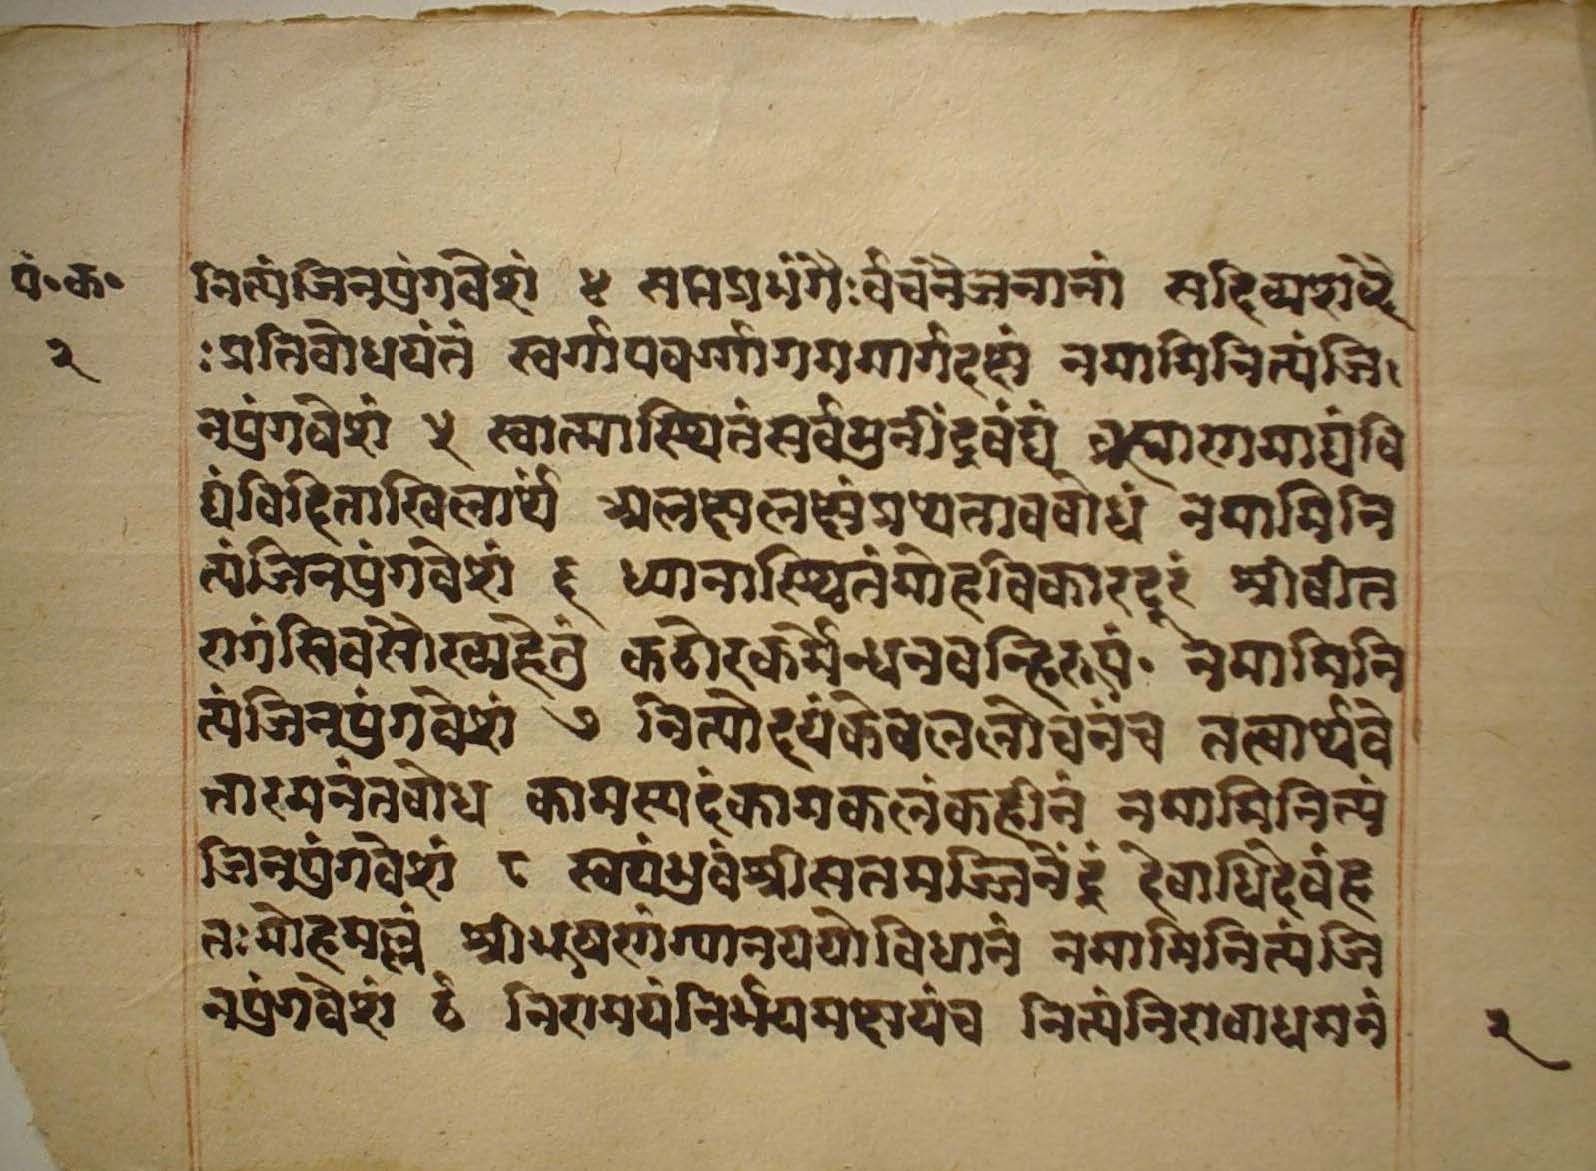 पं॰क॰ नित्यंजिनपुंगवेशं ४ सप्तप्रभंगैःर्वचनैजनानां सद्दिव्यशब्दै
२ :प्रतिबोधयंतं स्वर्गापवर्गागममार्गदक्षं नमामिनित्यंजि
नपुंगवेशं ५ स्वात्मास्थितंसर्वमुनींद्रवंद्यं वि
द्यंविहिताखिलार्थं अलक्षलक्षंप्रथनावबोधं नमामिनि
त्यंजिनपुंगवेशं ६ ध्यानास्थितंमोहविकारदूरं श्रीवीत
रागंसिवसौख्यहेतुं कठोरकर्मेन्धनवन्हिरुपं॰ नमामिनि
त्यंजिनपुंगवेशं ७ नित्योदयंकेवललोचनंच तत्वार्थवे
त्तारमनंतबोध कामस्पदंकामकलंकहीनं नमामिनित्यं
जिनपुंगवेशं ८ स्वयंभुवंश्रीसतमज्जिनेंद्रं देवाधिदेवंह
तःमोहमल्लं विधानं नमामिनित्यंजि
नपुंगवेशं ९ निरामयंनिर्भयमक्षयंच नित्यंनिराबाधमनं
२